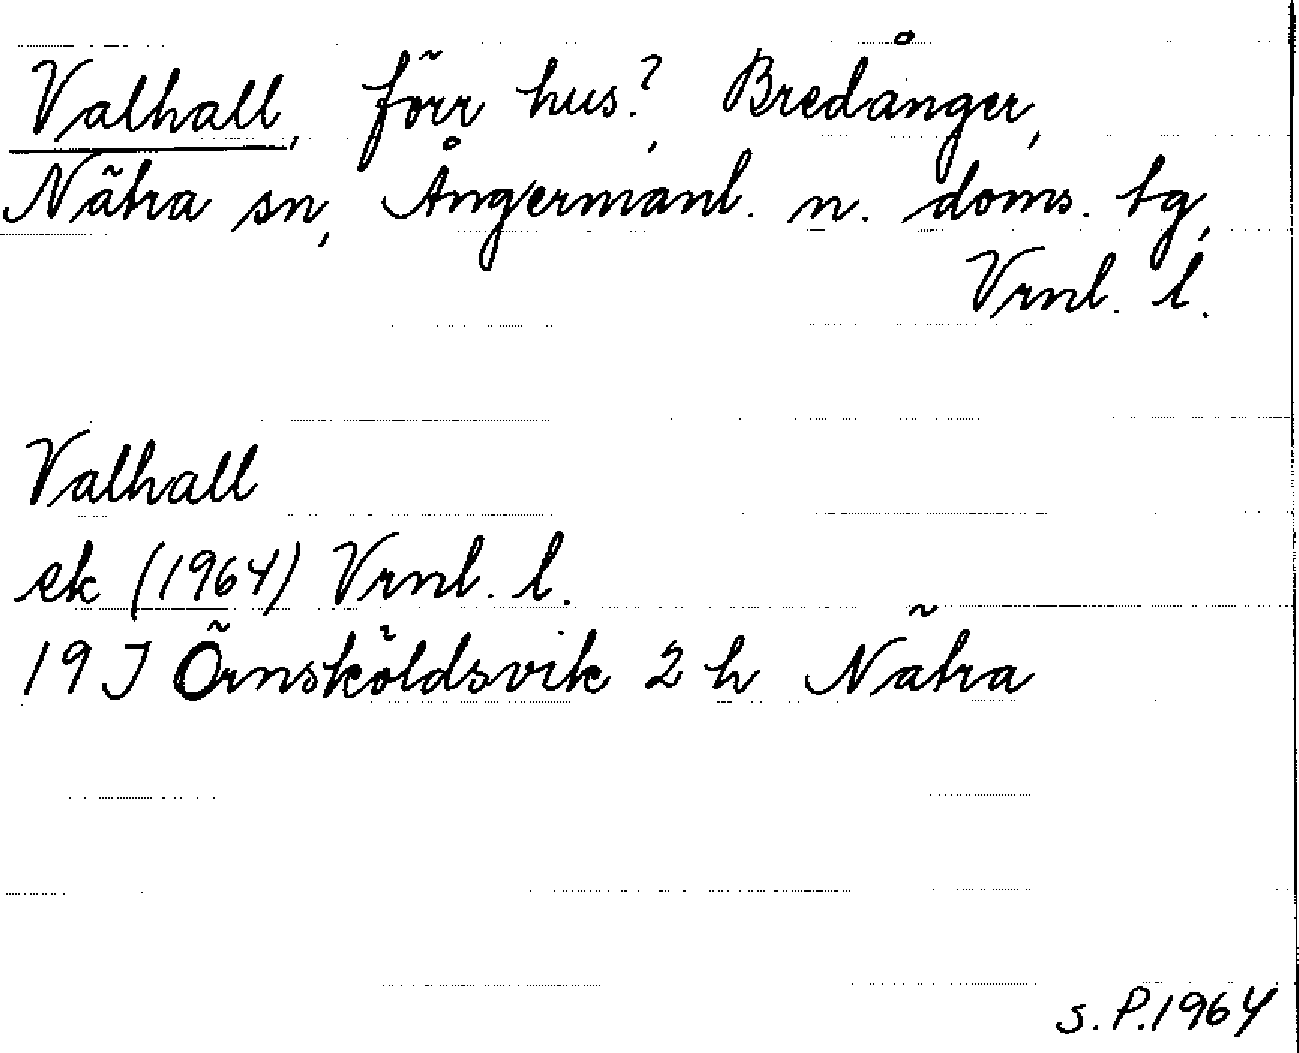 Valhall, förr hus?, Bredånger,
Nätra sn, Ångermanl. n. doms. tg,
Vrnl. l.
Valhall
ek (1964) Vrnl. l.
19 J Örnsköldsvik 2 h Nätra
s. P. 1964